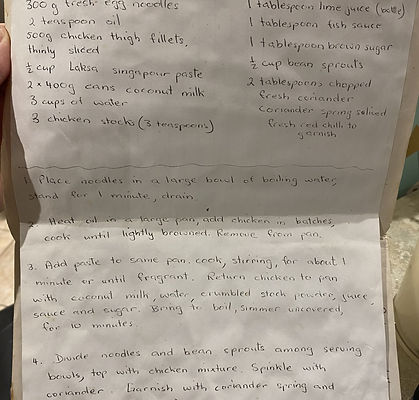 300 g fresh egg noodles
2 teaspoon oil
500g chicken thigh fillets,
thinly sliced
1/2 cup Laksa singapour paste
2 x 400g cans coconut milk
3 cups of water
3 chicken stocks (3 teaspoons)
1 tablespoon lime juice (bottle)
1 tablespoon fish sauce
1 tablespoon brown sugar
1/2 cup bean sprouts
2 tablespoons chopped
fresh coriander
coriander spring
fresh red chili to
garnish
1. Place noodles in a large bowl of boiling water,
stand for 1 minute, drain.
Heat oil in a large pan, add chicken in batches,
cook until lightly browned. Remove from pan.
3. Add paste to same pan. cook, stirring, for about 1
minute or until fragrant. Return chicken to pan
with coconut milk, water, crumbled stock powder, juice,
sauce and sugar. Bring to boil, simmer uncovered,
for 10 minutes.
4. Divide noodles and bean sprouts among serving
bowls, top with chicken mixture. Sprinkle with
coriander. Garnish with coriander spring and